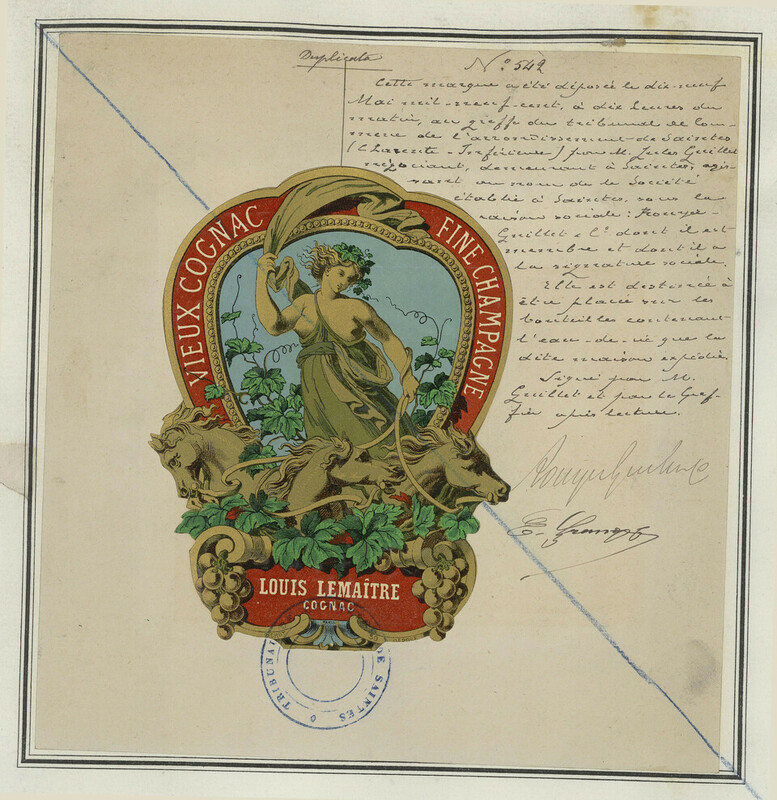 Duplicata
N° 542
Cette marque a été déposée le dix-neuf
Mai mil-neuf-cent, à dix heures du
matin, au greffe du tribunal de Com-
merce de l'arrondissement de Saintes
(Charente-Inférieure) par M. Jules Guillet
négociant, demeurant à Saintes, agis-
sant au nom de la Société
établie à Saintes, sous la
raison sociale: Rouyer-
Guillet & Cie dont il est
membre et dont il a
la signature sociale.
Elle est destinée à
être placée sur les
bouteilles contenant
l'eau-de-vie que la
dite maison expédie.
Signé par M.
Guillet et par le Gref-
fier après lecture.
VIEUX COGNAC
FINE CHAMPAGNE
LOUIS LEMAÎTRE
COGNAC
TRIBUNAL DE SAINTES